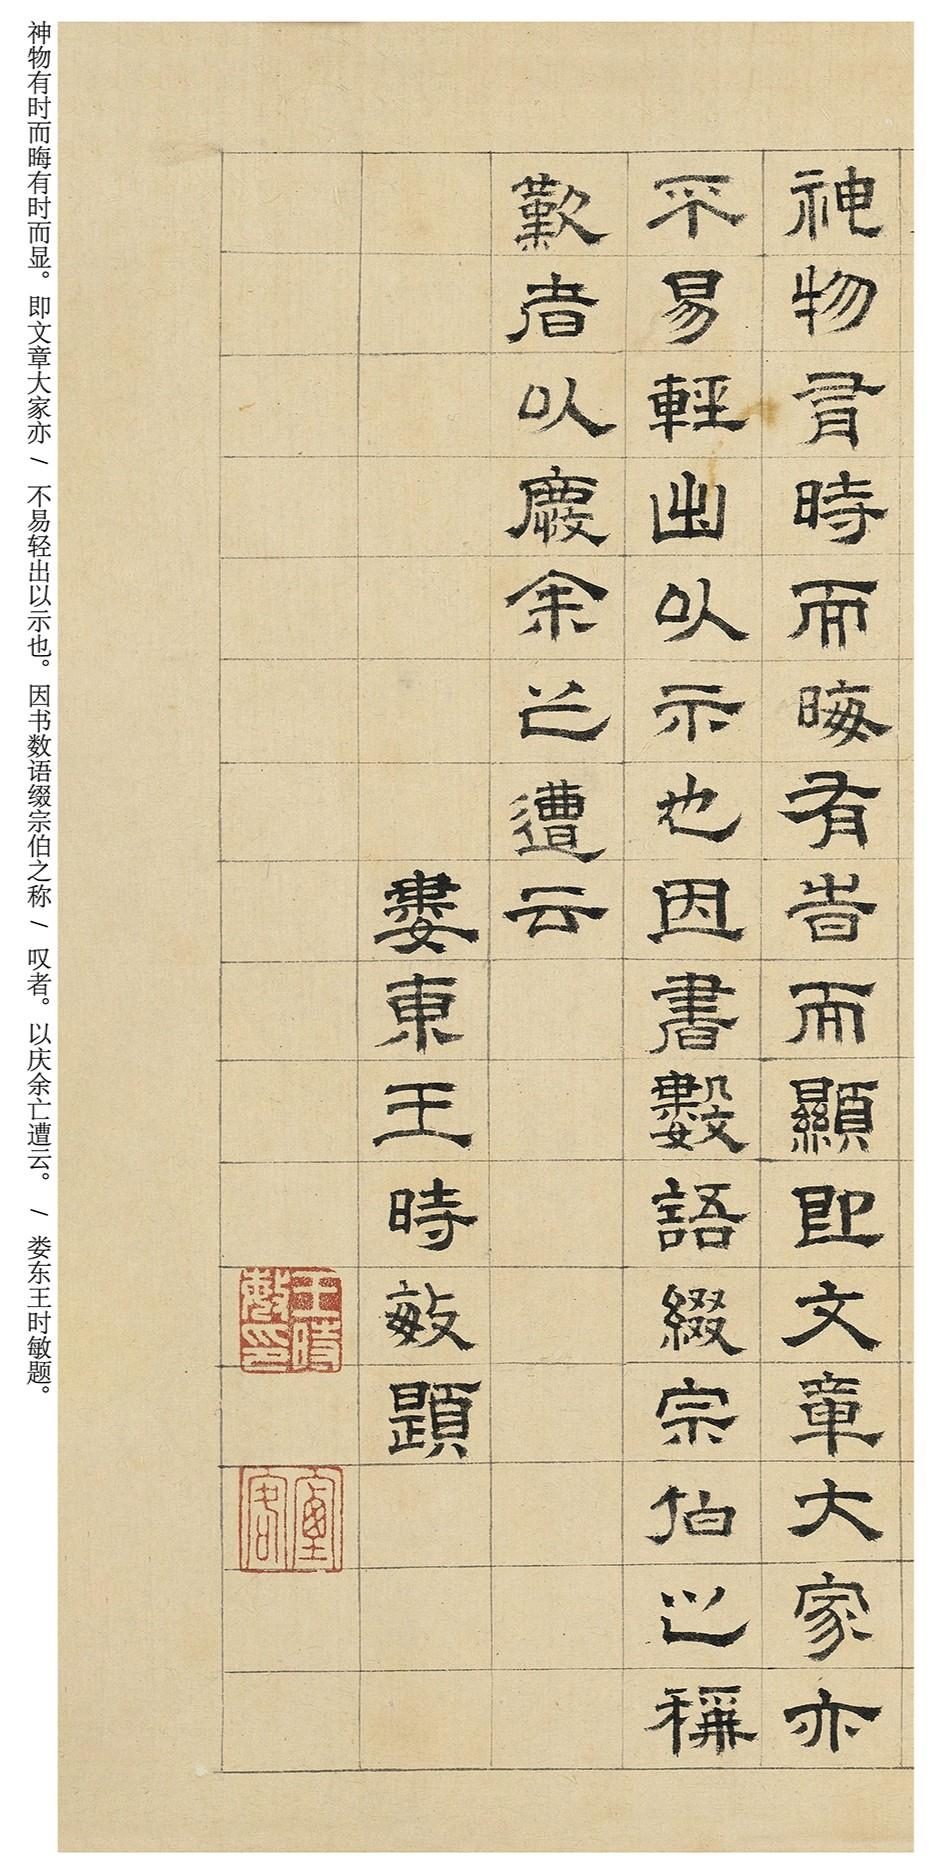 神物有時而晦有旹而顯即文章大家亦
不易輕出以示也因書數語綴宗伯之稱
歎者以慶余亾遭云
婁東王時敏題
王時敏印
神物有时而晦有时而显。即文章大家亦 / 不易轻出以示也。因书数语缀宗伯之称 / 叹者。以庆余亡遭云。 / 娄东王时敏题。